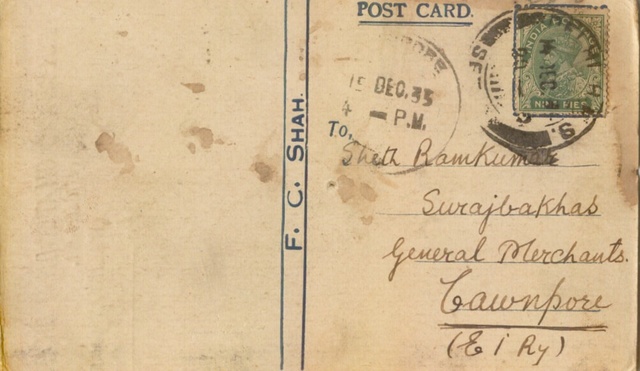 POST CARD.
INDIA
15 DEC. 35
4 — P.M.
F. C. SHAH.
To,
Sheth Ramkumar
Surajbakhas
General Merchants.
Cawnpore
(E I Ry)